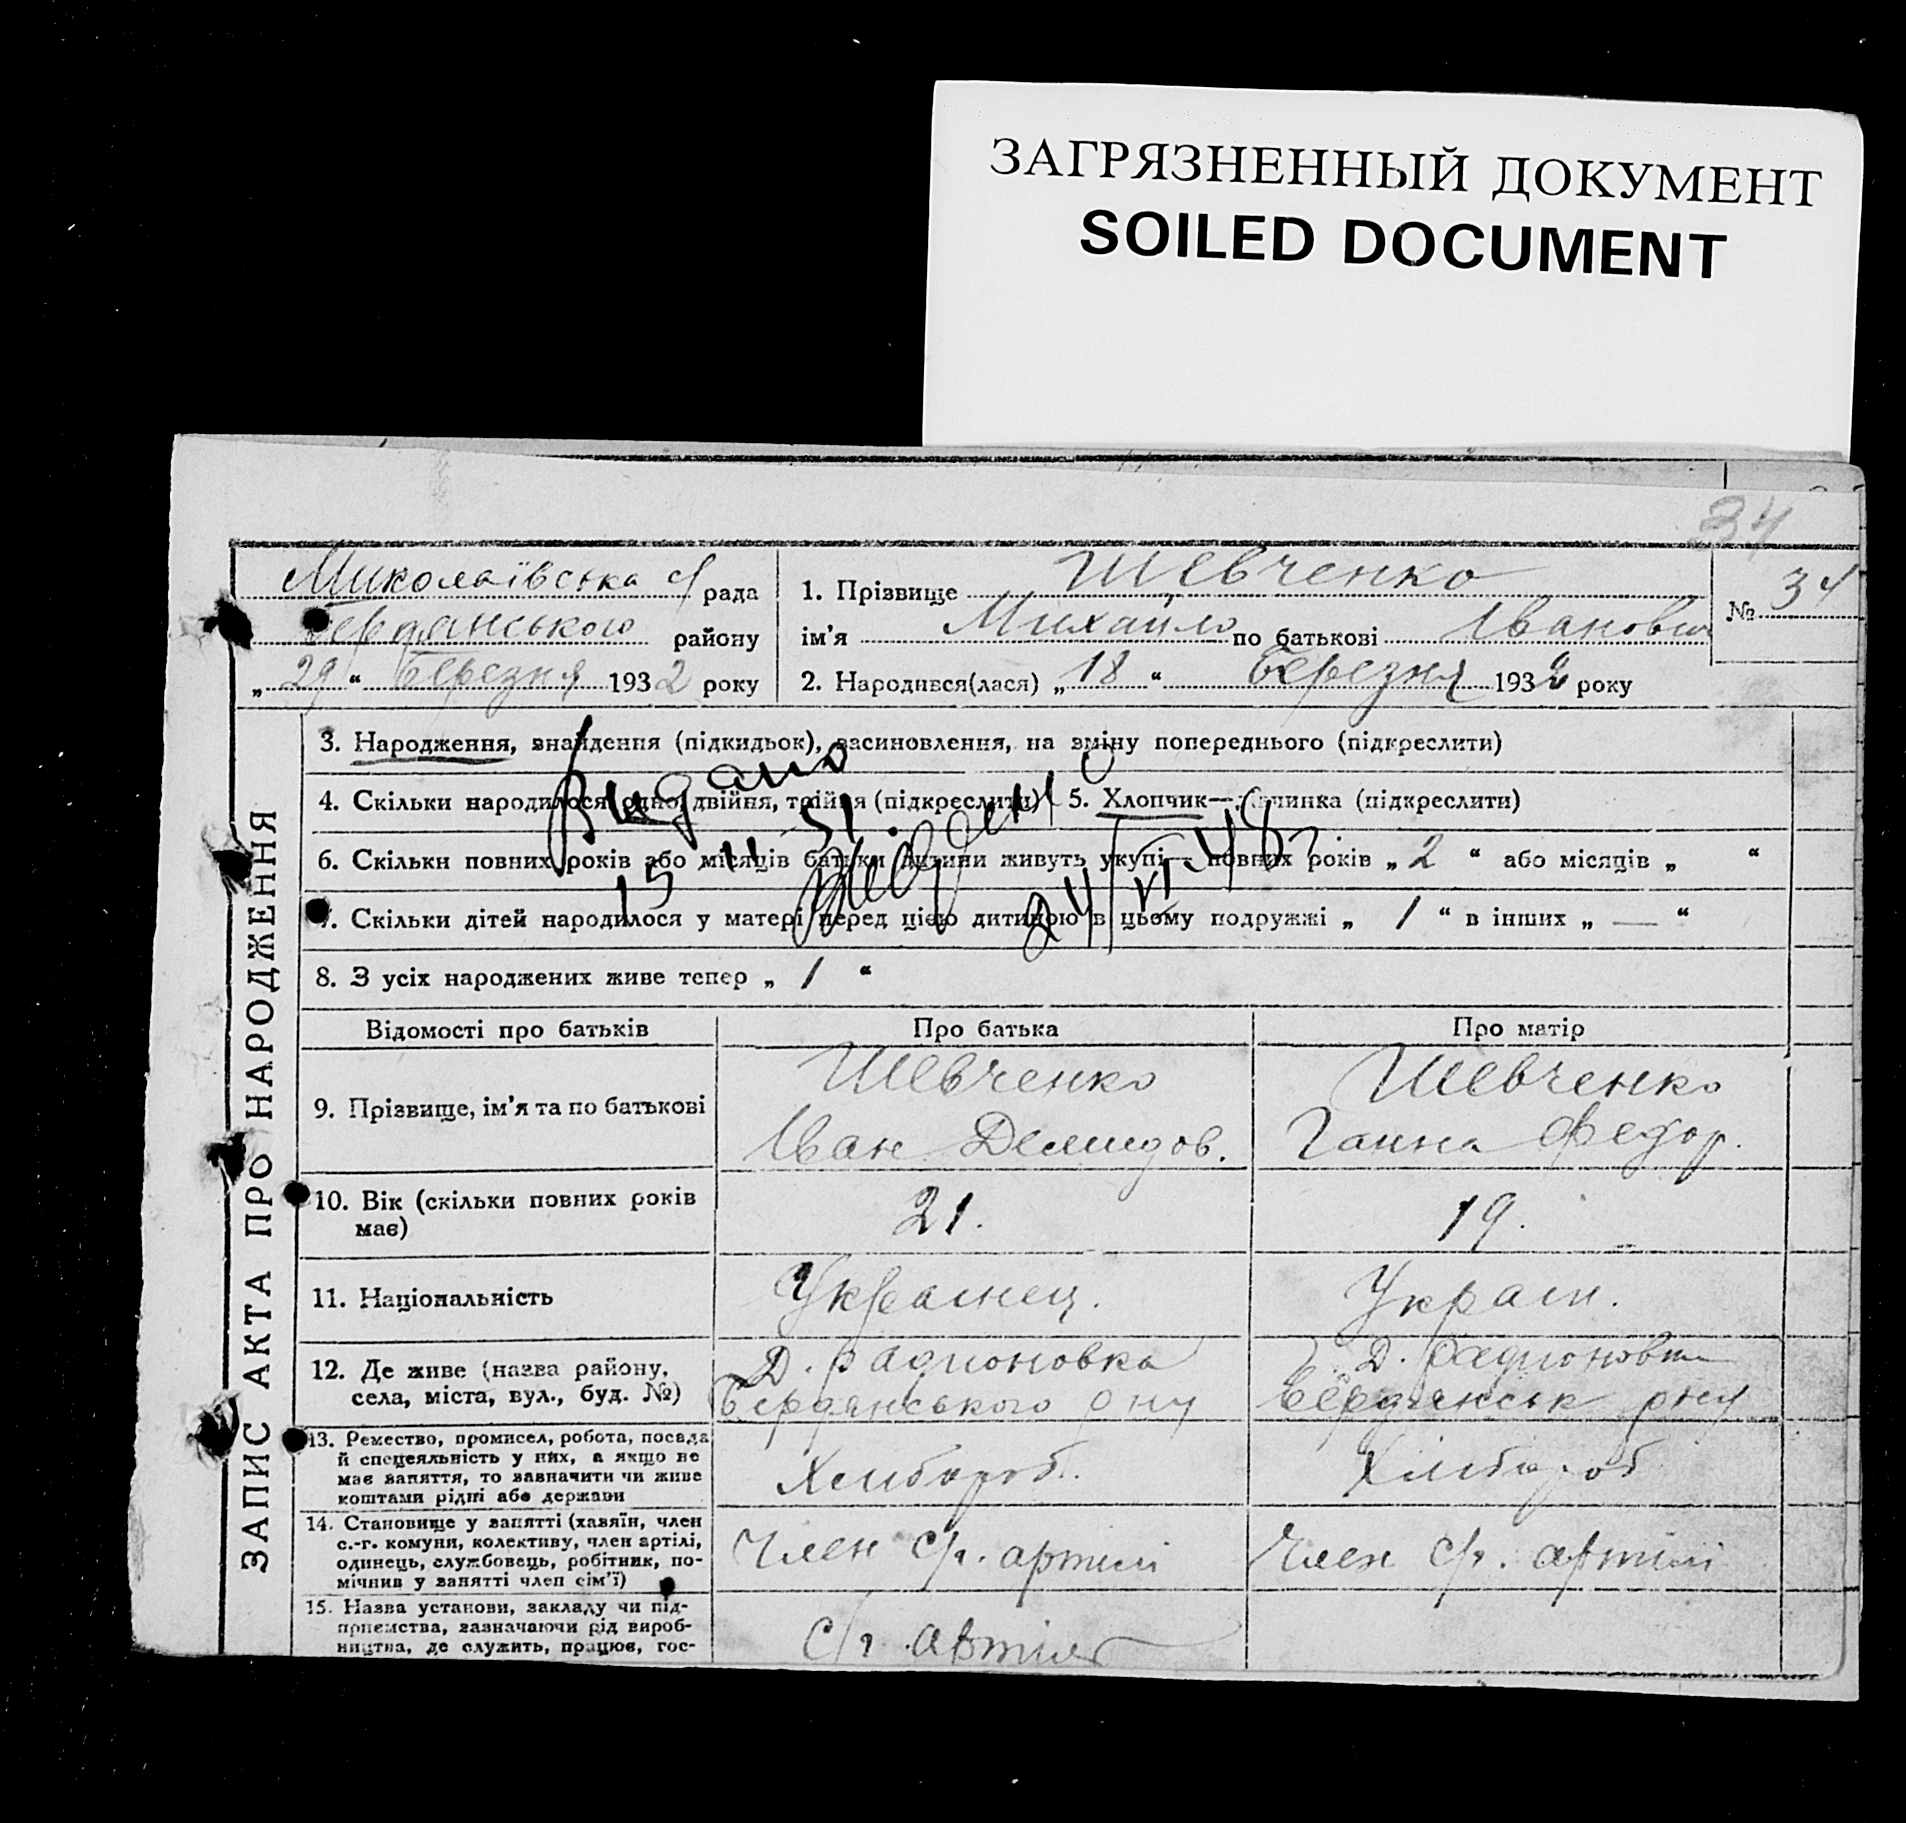 ЗАГРЯЗНЕННЫЙ ДОКУМЕНТ
SOILED DOCUMENT
34
Миколаївська с/ рада
Бердянського району
„ 29 “ Березня 1932 року
1. Прізвище Шевченко
ім’я Михайло по батькові Іванович
№ 34
2. Народився(лася) „ 18 “ Березня 1932 року
ЗАПИС АКТА ПРО НАРОДЖЕННЯ
3. Народження, знайдення (підкидьок), засиновлення, на зміну попереднього (підкреслити)
4. Скільки народилося: одно, двійня, трійня (підкреслити) 5. Хлопчик—дівчинка (підкреслити)
6. Скільки повних років або місяців батьки дитини живуть укупі— повних років „ 2 “ або місяців „ “
7. Скільки дітей народилося у матері перед цією дитиною в цьому подружжі „ 1 “ в інших „ — “
8. З усіх народжених живе тепер „ 1 “
Видано
Відомості про батьків Про батька Про матір
9. Прізвище, ім’я та по батькові
Шевченко
Іван Демидов.
Шевченко
Ганна Федор.
10. Вік (скільки повних років
має)
21.
19.
11. Національність
Украинец.
Украин.
12. Де живе (назва району,
села, міста, вул., буд. №)
Д. Радионовка
Бердянського рну
Д. Радионовка
Бердянськ рну
13. Ремество, промисел, робота, посада
й спецеяльність у них, а якщо не
має заняття, то зазначити чи живе
коштами рідні або держави
Хлибороб.
Хлибороб
14. Становище у занятті (хазяїн, член
с.-г. комуни, колективу, член артілі,
одинець, службовець, робітник, по-
мічник у занятті член сім’ї)
Член с/г. артилі
Член с/г. артилі
15. Назва установи, закладу чи під-
приємства, зазначаючи рід вироб-
ництва, де служить, працює, гос-
с/г. артиль